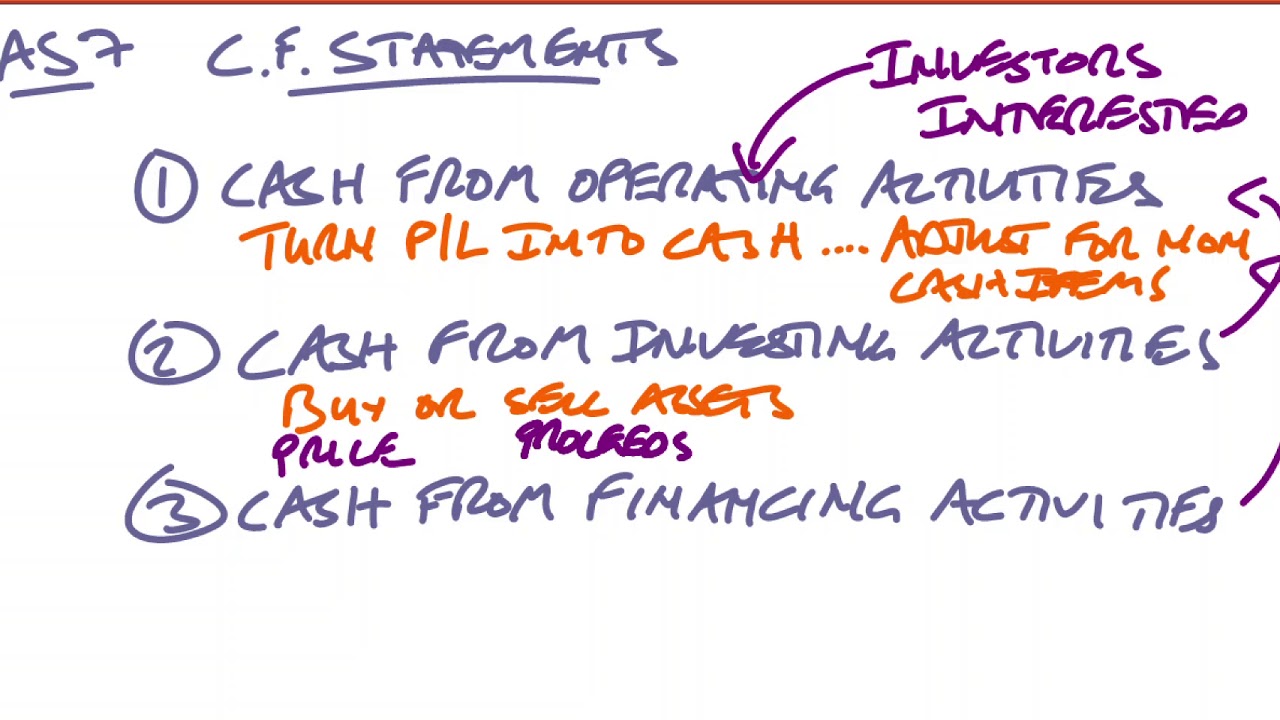 AS7 C.F. STATEMENTS
INVESTORS
INTERESTED
1 CASH FROM OPERATING ACTIVITIES
TURN P/L INTO CASH .... ADJUST FOR NON
CASH ITEMS
2 CASH FROM INVESTING ACTIVITIES
BUY OR SELL ASSETS
PRICE PROCEEDS
3 CASH FROM FINANCING ACTIVITIES